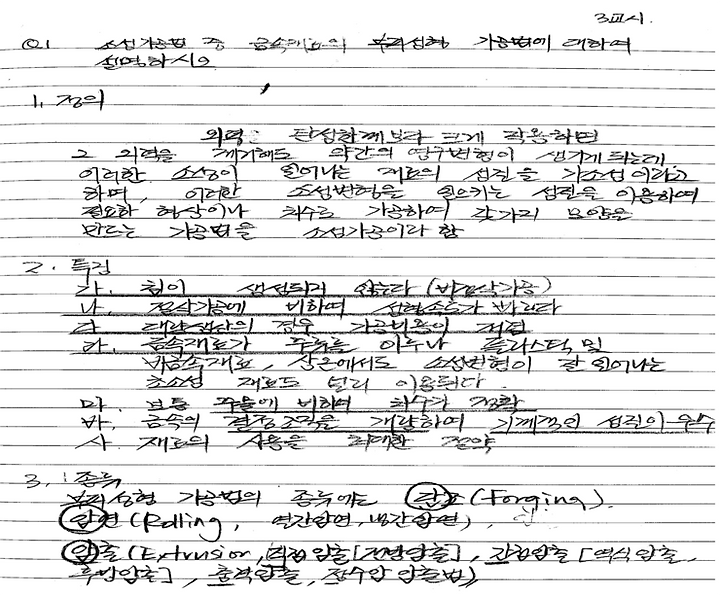 3교시.
Q1 소성가공법 중 금속재료의 부피성형 가공법에 대하여
설명하시오
1. 정의
외력을 탄성한계보다 크게 작용하면
그 외력을 제거해도 약간의 영구변형이 생기게 되는데
이러한 소성이 일어나는 재료의 성질을 가소성이라고
하며, 이러한 소성변형을 일으키는 성질을 이용하여
필요한 형상이나 치수로 가공하여 갖가지 모양을
만드는 가공법을 소성가공이라 함
2. 특징
가. 칩이 생성되지 않는다 (비절삭가공)
나. 절삭가공에 비하여 성형속도가 빠르다
다. 대량생산의 경우 가공비용이 저렴
라. 금속재료가 주류를 이루나 플라스틱 및
비금속재료, 상온에서도 소성변형이 잘 일어나는
초소성 재료도 널리 이용된다.
마. 보통 주물에 비하여 치수가 정확
바. 금속의 결정조직을 개량하여 기계적인 성질이 우수
사. 재료의 사용을 최대한 절약
3. 종류
부피성형 가공법의 종류에는 단조(Forging).
압연(Rolling, 열간압연, 냉간압연),
압출(Extrusion, 직접압출[전방압출], 간접압출[역식압출,
후방압출], 충격압출, 정수압 압출법),